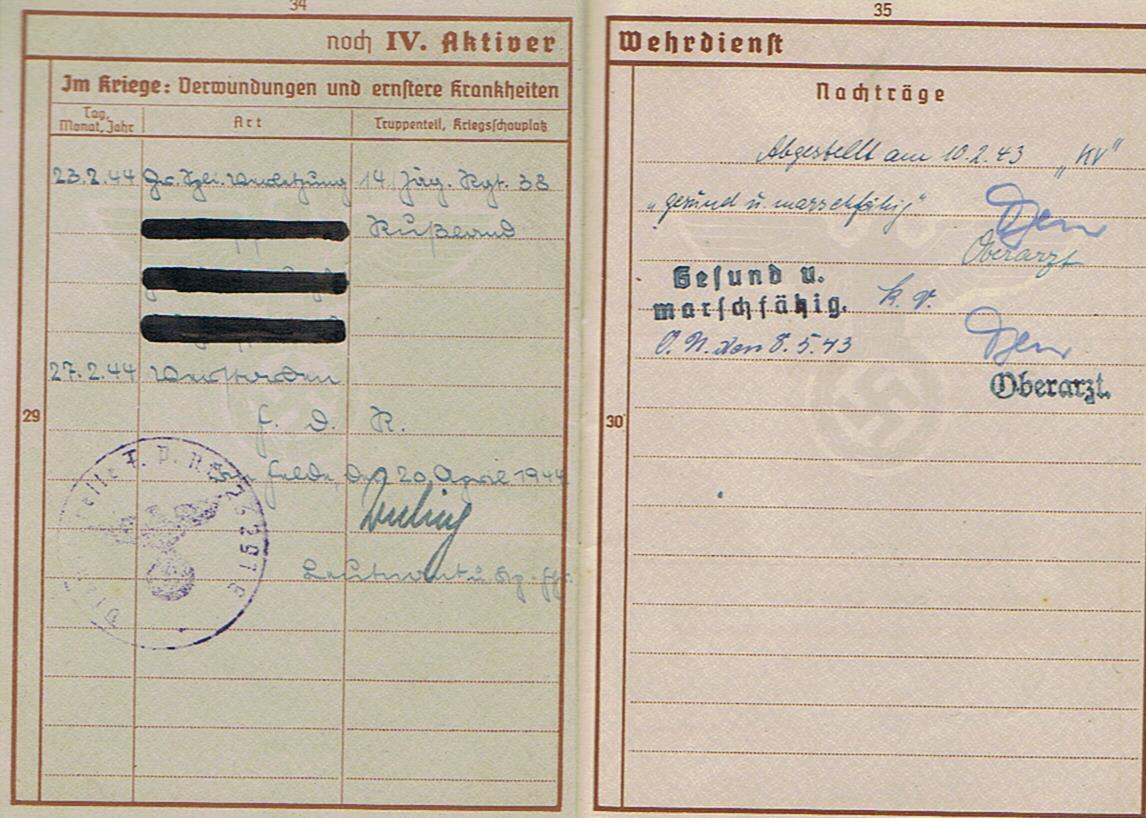 34
noch IV. Aktiver
Im Kriege: Verwundungen und ernstere Krankheiten
Tag, Monat, Jahr
Art
Truppenteil, Kriegsschauplatz
23.2.44 Gr. Spl. Verletzung 14. Jäg. Rgt. 38
Rußland
27.2.44 Verstorben
29
f. d. R.
Im Felde, den 20. April 1944
Leutnant u. Kp.-
35
Wehrdienst
Nachträge
Abgestellt am 10.2.43 „KV“
„gesund u. marschfähig“
Oberarzt
Gesund u.
marschfähig. k. v.
O. N. den 8.5.43
Oberarzt.
30